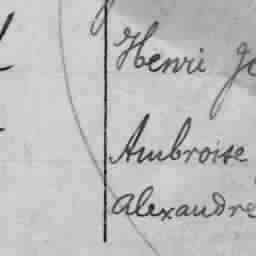 Henri
Ambroise
Alexandre